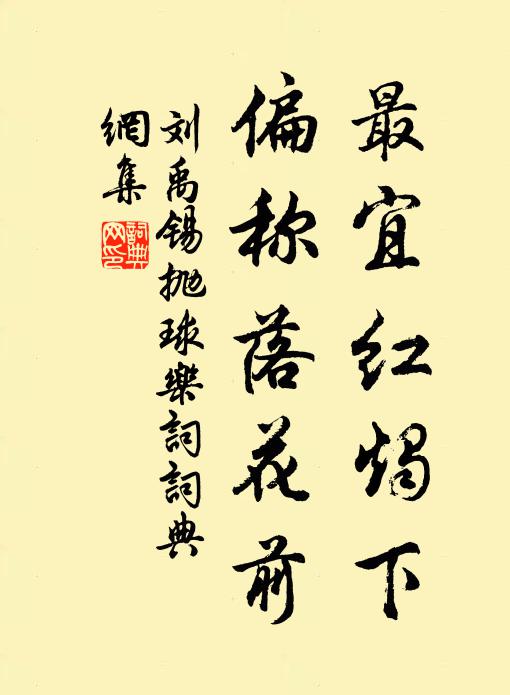 最宜红烛下
偏称落花前
刘禹锡抛球樂詞詞典
網集
詞典网印